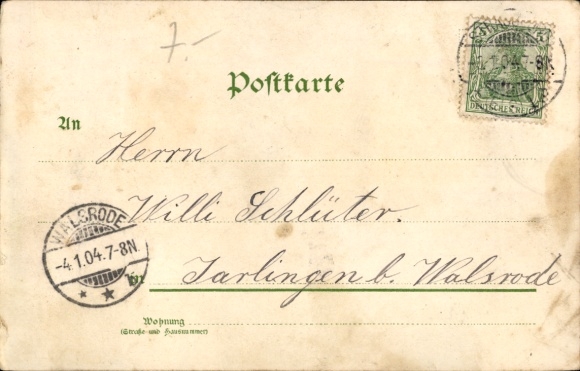 7.-
5
-3.1.04.7-8N
DEUTSCHES REICH
Postkarte
An
Herrn
Willi Schlüter.
in Jarlingen b. Walsrode
WALSRODE
-4.1.04.7-8N
Wohnung
(Straße und Hausnummer)